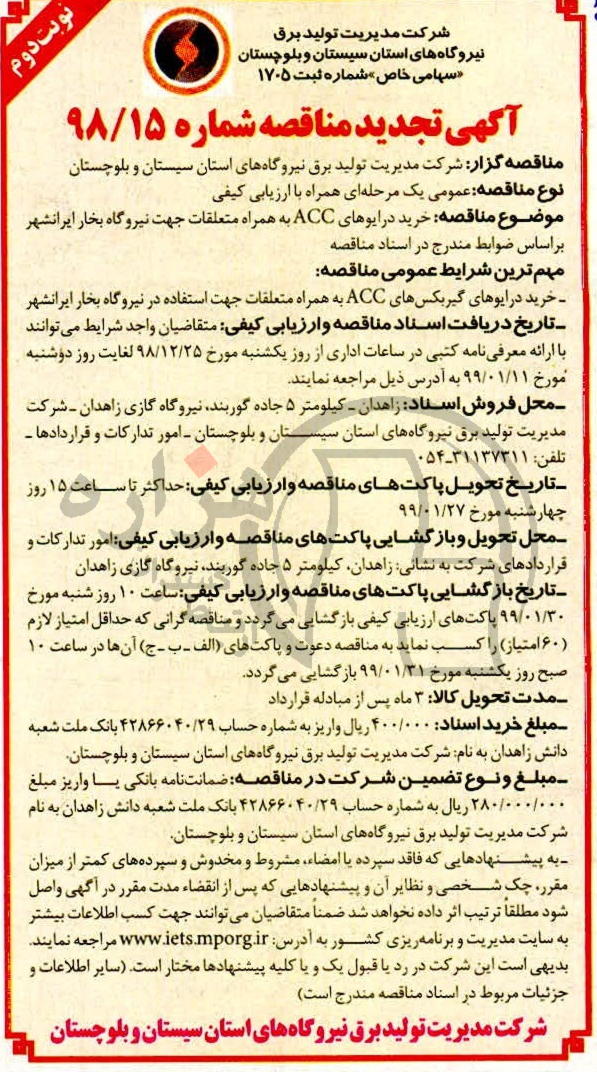 نوبت دوم
شرکت مدیریت تولید برق
نیروگاه‌های استان سیستان و بلوچستان
«سهامی خاص» شماره ثبت ۱۷۰۵
آگهی تجدید مناقصه شماره ۹۸/۱۵
مناقصه گزار: شرکت مدیریت تولید برق نیروگاه‌های استان سیستان و بلوچستان
نوع مناقصه: عمومی یک مرحله‌ای همراه با ارزیابی کیفی
موضوع مناقصه: خرید درایوهای ACC به همراه متعلقات جهت نیروگاه بخار ایرانشهر
براساس ضوابط مندرج در اسناد مناقصه
مهم‌ترین شرایط عمومی مناقصه:
ـ خرید درایوهای گیربکس‌های ACC به همراه متعلقات جهت استفاده در نیروگاه بخار ایرانشهر
ـ تاریخ دریافت اسناد مناقصه وارزیابی کیفی: متقاضیان واجد شرایط می‌توانند
با ارائه معرفی‌نامه کتبی در ساعات اداری از روز یکشنبه مورخ ۹۸/۱۲/۲۵ لغایت روز دوشنبه
مورخ ۹۹/۰۱/۱۱ به آدرس ذیل مراجعه نمایند.
ـ محل فروش اسناد: زاهدان ـ کیلومتر ۵ جاده گوربند، نیروگاه گازی زاهدان ـ شرکت
مدیریت تولید برق نیروگاه‌های استان سیستان و بلوچستان ـ امور تدارکات و قراردادها ـ
تلفن: ۳۱۱۳۷۳۱۱-۰۵۴
ـ تاریخ تحویل پاکت‌های مناقصه وارزیابی کیفی: حداکثر تا ساعت ۱۵ روز
چهارشنبه مورخ ۹۹/۰۱/۲۷
ـ محل تحویل وبازگشایی پاکت‌های مناقصه وارزیابی کیفی: امور تدارکات و
قراردادهای شرکت به نشانی: زاهدان، کیلومتر ۵ جاده گوربند، نیروگاه گازی زاهدان
ـ تاریخ بازگشایی پاکت‌های مناقصه وارزیابی کیفی: ساعت ۱۰ روز شنبه مورخ
۹۹/۰۱/۳۰ پاکت‌های ارزیابی کیفی بازگشایی می‌گردد و مناقصه‌گرانی که حداقل امتیاز لازم
(۶۰ امتیاز) را کسب نماید به مناقصه دعوت و پاکت‌های (الف ـ ب ـ ج) آن‌ها در ساعت ۱۰
صبح روز یکشنبه مورخ ۹۹/۰۱/۳۱ بازگشایی می‌گردد.
ـ مدت تحویل کالا: ۳ ماه پس از مبادله قرارداد
ـ مبلغ خرید اسناد: ۴۰۰/۰۰۰ ریال واریز به شماره حساب ۴۲۸۶۶۰۴۰/۲۹ بانک ملت شعبه
دانش زاهدان به نام: شرکت مدیریت تولید برق نیروگاه‌های استان سیستان و بلوچستان.
ـ مبلغ و نوع تضمین شرکت در مناقصه: ضمانت‌نامه بانکی یا واریز مبلغ
۲۸۰/۰۰۰/۰۰۰ ریال به شماره حساب ۴۲۸۶۶۰۴۰/۲۹ بانک ملت شعبه دانش زاهدان به نام
شرکت مدیریت تولید برق نیروگاه‌های استان سیستان و بلوچستان.
ـ به پیشنهادهایی که فاقد سپرده یا امضاء، مشروط و مخدوش و سپرده‌های کمتر از میزان
مقرر، چک شخصی و نظایر آن و پیشنهادهایی که پس از انقضاء مدت مقرر در آگهی واصل
شود مطلقاً ترتیب اثر داده نخواهد شد ضمناً متقاضیان می‌توانند جهت کسب اطلاعات بیشتر
به سایت مدیریت و برنامه‌ریزی کشور به آدرس: www.iets.mporg.ir مراجعه نمایند.
بدیهی است این شرکت در رد یا قبول یک و یا کلیه پیشنهادها مختار است. (سایر اطلاعات و
جزئیات مربوط در اسناد مناقصه مندرج است)
شرکت مدیریت تولید برق نیروگاه‌های استان سیستان و بلوچستان
هزاره